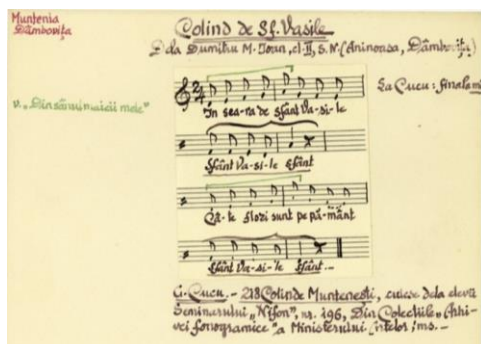 Muntenia
Dâmbovița
Colind de Sf. Vasile
dela Dumitru M. Ioan, cl. II, S. N. (Aninoasa, Dâmbovița)
La Cucu: finala mi
v. „Din sânul maicii mele”
2/4
In sea-ra de Sfânt Va-si-le
Sfânt Va-si-le Sfânt
Câ-te flori sunt pe pă-mânt
Sfânt Va-si-le Sfânt.-
G. Cucu. - 218 Colinde Muntenești, culese dela elevii
Seminarului „Nifon”, nr. 196, Din Colecțiile „Arhi-
vei fonogramice” a Ministerului Artelor, ms. -